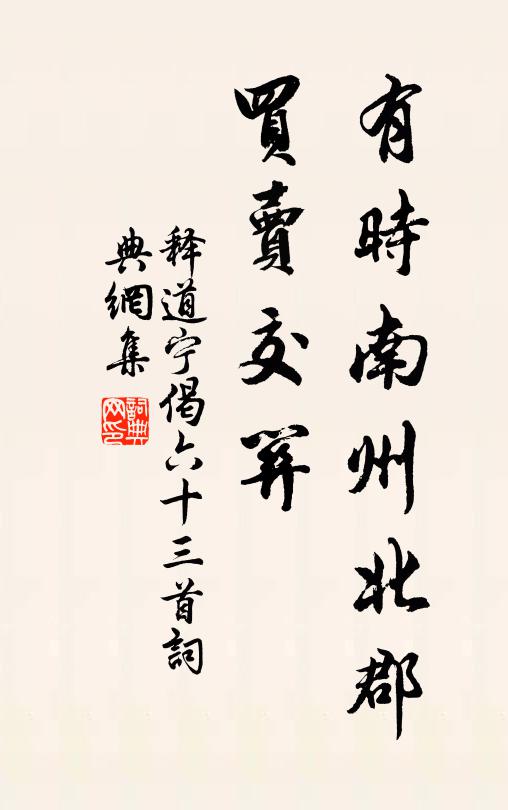 有時南州北郡
買賣交關
释道宁偈六十三首詞
典網集
詞典
网印